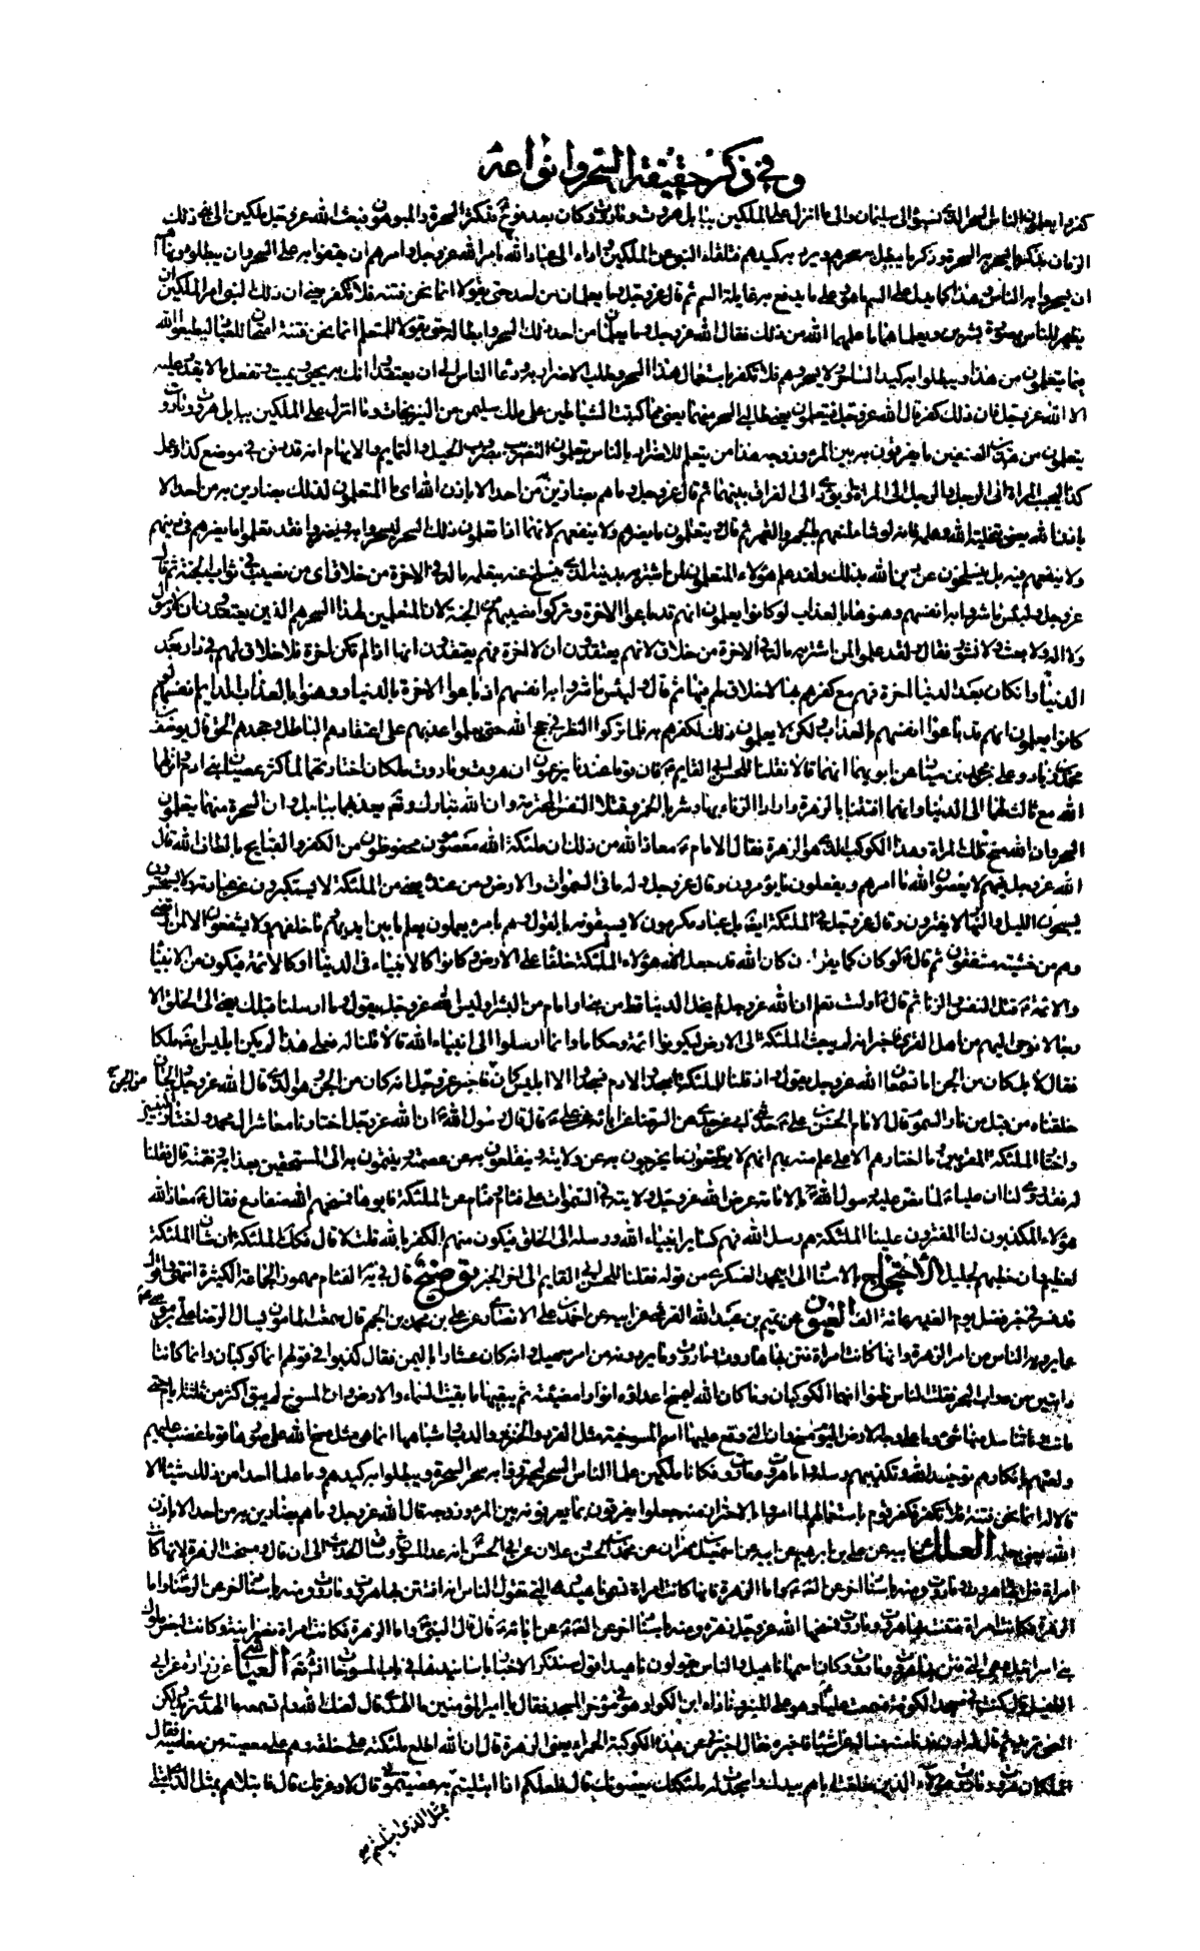 وفي ذكر حقيقة السحر وانواعه
كفروا يعلمون الناس السحر الذي نسبوه الى سليمان والى ما انزل على الملكين ببابل هروت وماروت وكان بعد نوح قد كثر السحرة والمموهون فبعث الله عز وجل ملكين الى نبي ذلك
الزمان بذكر ما يسحر به السحرة وذكر ما يبطل به سحرهم ويرد به كيدهم فتلقاه النبي عن الملكين واداه الى عباد الله بامر الله عز وجل وامرهم ان يقفوا به على السحر وان يبطلوه ونهاهم
ان يسحروا به الناس وهذا كما يدل على السم ما هو وعلى ما يدفع به غايلة السم ثم قال عز وجل وما يعلمان من احد حتى يقولا انما نحن فتنة فلا تكفر يعني ان ذلك النبي امر الملكين ان
يظهرا للناس بصورة بشرين ويعلماهم ما علمهما الله من ذلك فقال الله عز وجل وما يعلمان من احد ذلك السحر وابطاله حتى يقولا للمتعلم انما نحن فتنة امتحان للعباد ليطيعوا الله
فيما يتعلمون من هذا ويبطلوا به كيد الساحر ولا يسحروهم فلا تكفر باستعمال هذا السحر وطلب الاضرار به ودعاء الناس الى ان يعتقدوا انك به تحيي وتميت وتفعل ما لا يقدر عليه
الا الله عز وجل فان ذلك كفر قال الله عز وجل فيتعلمون يعني طالبي السحر منهما يعني مما كتبت الشياطين على ملك سليمن من النيرنجات وما انزل على الملكين ببابل هروت وماروت
يتعلمون من هذين الصنفين ما يفرقون به بين المرء وزوجه هذا من يتعلم للاضرار بالناس يتعلمون التضريب بضروب الحيل والتمايم والايهام انه قد دفن في موضع كذا وعمل
كذا ليحبب المراة الى الرجل والرجل الى المراة او يؤدي الى الفراق بينهما ثم قال عز وجل وما هم بضارين به من احد الا باذن الله اي ما المتعلمون لذلك بضارين به من احد الا
باذن الله يعني بتخلية الله وعلمه فانه لو شاء لمنعهم بالجبر والقهر ثم قال ويتعلمون ما يضرهم ولا ينفعهم لانهم اذا تعلموا ذلك السحر ليسحروا به ويضروا فقد تعلموا ما يضرهم في دينهم
ولا ينفعهم فيه بل ينسلخون عن دين الله بذلك ولقد علم هؤلاء المتعلمون لمن اشتراه بدينه الذي ينسلخ عنه بتعلمه ما له في الاخرة من خلاق اي من نصيب في ثواب الجنة ثم قال
عز وجل ولبئس ما شروا به انفسهم ورهنوها بالعذاب لو كانوا يعلمون انهم قد باعوا الاخرة وتركوا نصيبهم من الجنة لان المتعلمين لهذا السحر هم الذين يعتقدون ان لا رسول
ولا اله ولا بعث ولا نشور فقال ولقد علموا لمن اشتراه ما له في الاخرة من خلاق لانهم يعتقدون ان لا اخرة فهم يعتقدون انها اذا لم تكن اخرة فلا خلاق لهم في دار بعد
الدنيا وان كان بعد الدنيا اخرة فهم مع كفرهم بها لا خلاق لهم فيها ثم قال ولبئس ما شروا به انفسهم اذ باعوا الاخرة بالدنيا ورهنوا بالعذاب الدايم انفسهم لو
كانوا يعلمون انهم قد باعوا انفسهم بالعذاب ولكن لا يعلمون ذلك لكفرهم به فلما تركوا النظر في حجج الله حتى يعلموا عذبهم على اعتقادهم الباطل وجحدهم الحق قال يوسف بن
محمد بن زياد وعلي بن محمد بن سيار عن ابويهما انهما قالا فقلنا للحسن ابي القايم ع فان قوما عندنا يزعمون ان هروت وماروت ملكان اختارتهما الملئكة لما كثر عصيان بني ادم وانزلهما
الله مع ثالث لهما الى الدنيا وانهما افتتنا بالزهرة وارادا الزناء بها وشربا الخمر وقتلا النفس المحرمة وان الله تبارك وتعالى يعذبهما ببابل وان السحرة منهما يتعلمون
السحر وان الله مسخ تلك المراة بهذا الكوكب الذي هو الزهرة فقال الامام ع معاذ الله من ذلك ان ملئكة الله معصومون محفوظون من الكفر والقبايح بالطاف الله قال
الله عز وجل فيهم لا يعصون الله ما امرهم ويفعلون ما يؤمرون وقال عز وجل وله ما في السموات والارض ومن عنده يعني من الملئكة لا يستكبرون عن عبادته ولا يستحسرون
يسبحون الليل والنهار لا يفترون وقال عز وجل في الملئكة ايضا بل عباد مكرمون لا يسبقونه بالقول وهم بامره يعملون يعلم ما بين ايديهم وما خلفهم ولا يشفعون الا لمن ارتضى
وهم من خشيته مشفقون ثم قال ع لو كان كما يقولون كان الله قد جعل هؤلاء الملئكة خلفاء على الارض وكانوا كالانبياء في الدنيا او كالائمة فيكون من الانبياء
والائمة ع قتل النفس والزنا ثم قال ع اولست تعلم ان الله عز وجل لم يخل الدنيا قط من نبي او امام من البشر اوليس الله عز وجل يقول وما ارسلنا قبلك يعني الى الخلق الا
رجالا نوحي اليهم من اهل القرى فاخبر انه لم يبعث الملئكة الى الارض ليكونوا ائمة وحكاما وانما ارسلوا الى انبياء الله قالا قلنا له فعلى هذا لم يكن ابليس ايضا ملكا
فقال لا بل كان من الجن اما تسمعان الله عز وجل يقول واذ قلنا للملئكة اسجدوا لادم فسجدوا الا ابليس كان من الجن فاخبر عز وجل انه كان من الجن وهو الذي قال الله عز وجل والجان
خلقناه من قبل من نار السموم قال الامام الحسن بن علي ع حدثني ابي عن جدي عن الرضا عن ابائه عن علي ع قال قال رسول الله ص ان الله عز وجل اختارنا معاشر ال محمد واختار النبيين
واختار الملئكة المقربين وما اختارهم الا على علم منه بهم انهم لا يواقعون ما يخرجون به عن ولايته وينقلعون به عن عصمته وينتمون به الى المستحقين بعذابه ونقمته قالا فقلنا
له فقد روي لنا ان عليا ع لما نص عليه رسول الله ص بالامامة عرض الله عز وجل ولايته في السموات على فئام وفئام من الملئكة فابوها فمسخهم الله ضفادع فقال ع معاذ الله
هؤلاء المكذبون لنا المفترون علينا الملئكة هم رسل الله فهم كساير انبياء الله ورسله الى الخلق فيكون منهم الكفر بالله قلت لا قال فكذلك الملئكة ان شان الملئكة
لعظيم وان خطبهم لجليل الاحتجاج بالاسناد الى ابي محمد العسكري ع من قوله فقلنا للحسن ابي القايم الى اخر الخبر توضيح قال في النهاية الفئام مهموز الجماعة الكثيرة انتهى واقول
قد فسر في خبر فضل يوم الغدير بمائة الف العيون عن تميم بن عبد الله القرشي عن ابيه عن احمد بن علي الانصاري عن علي بن محمد بن الجهم قال سمعت المامون يسال الرضا علي بن موسى ع
عما يرويه الناس من امر الزهرة وانها كانت امراة فتن بها هاروت وماروت وما يروونه من امر سهيل وانه كان عشارا باليمن فقال كذبوا في قولهم انهما كوكبان وانما كانتا
دابتين من دواب البحر فغلط الناس وظنوا انهما الكوكبان وما كان الله ليمسخ اعداءه انوارا مضيئة ثم يبقيها ما بقيت السماء والارض وان المسوخ لم يبق اكثر من ثلثة ايام حتى
ماتت وما تناسل منها شيء وما على وجه الارض اليوم مسخ وان التي وقع عليها اسم المسوخية مثل القرد والخنزير والدب واشباهها انما هي مثل ما مسخ الله على صورها قوما غضب عليهم
ولعنهم بانكارهم توحيد الله وتكذيبهم رسله واما هروت وماروت فكانا ملكين علما الناس السحر ليحترزوا به سحر السحرة ويبطلوا به كيدهم وما علما احدا من ذلك شيئا الا
قالا له انما نحن فتنة فلا تكفر فكفر قوم باستعمالهم لما امروا بالاحتراز منه وجعلوا يفرقون بما يعرفونه بين المرء وزوجه قال الله عز وجل وما هم بضارين به من احد الا باذن
الله يعني بعلمه العلل عن ابيه عن علي بن ابراهيم عن ابيه عن اسمعيل بن مهران عن محمد بن الحسن علان عن ابي الحسن ع انه عد المسوخ وساق الحديث الى ان قال ومسخت الزهرة لانها كانت
امراة فتن بها هروت وماروت ومنه باسناد اخر عن الصادق ع واما الزهرة فانها كانت امراة تسمى ناهيد وهي التي تقول الناس انه افتتن بها هروت وماروت ومنه باسناد اخر عن الرضا ع واما
الزهرة فكانت امراة فتنت بها هروت وماروت فمسخها الله عز وجل زهرة ومنه باسناد اخر عن الصادق عن ابائه ع قال قال النبي ص واما الزهرة فكانت امراة نصرانية وكانت لبعض ملوك
بني اسرائيل وهي التي فتن بها هروت وماروت وكان اسمها ناهيل والناس يقولون ناهيد اقول سنذكر الاخبار باسانيدها في باب المسوخ ان شاء الله العياشي عن زرارة عن ابي
الطفيل قال كنت في مسجد الكوفة فسمعت عليا ع وهو على المنبر وناداه ابن الكوا وهو في مؤخر المسجد فقال يا امير المؤمنين ما الهدى قال لعنك الله ولم تسمعه ما الهدى تريد ولكن
العمى تريد ثم قال له ادن فدنا منه فساله عن اشياء فاخبره فقال اخبرني عن هذه الكوكبة الحمراء يعني الزهرة قال ان الله اطلع ملئكته على خلقه وهم على معصية من معاصيه فقال
الملكان هروت وماروت هؤلاء الذين خلقت اباهم بيدك واسجدت له ملئكتك يعصونك قال فلعلكم لو ابتليتم بمثل الذي ابتليتهم به عصيتموني قالا لا وعزتك قال فابتلاهم بمثل الذي ابتلى
بمثل الذي ابتليتهم به